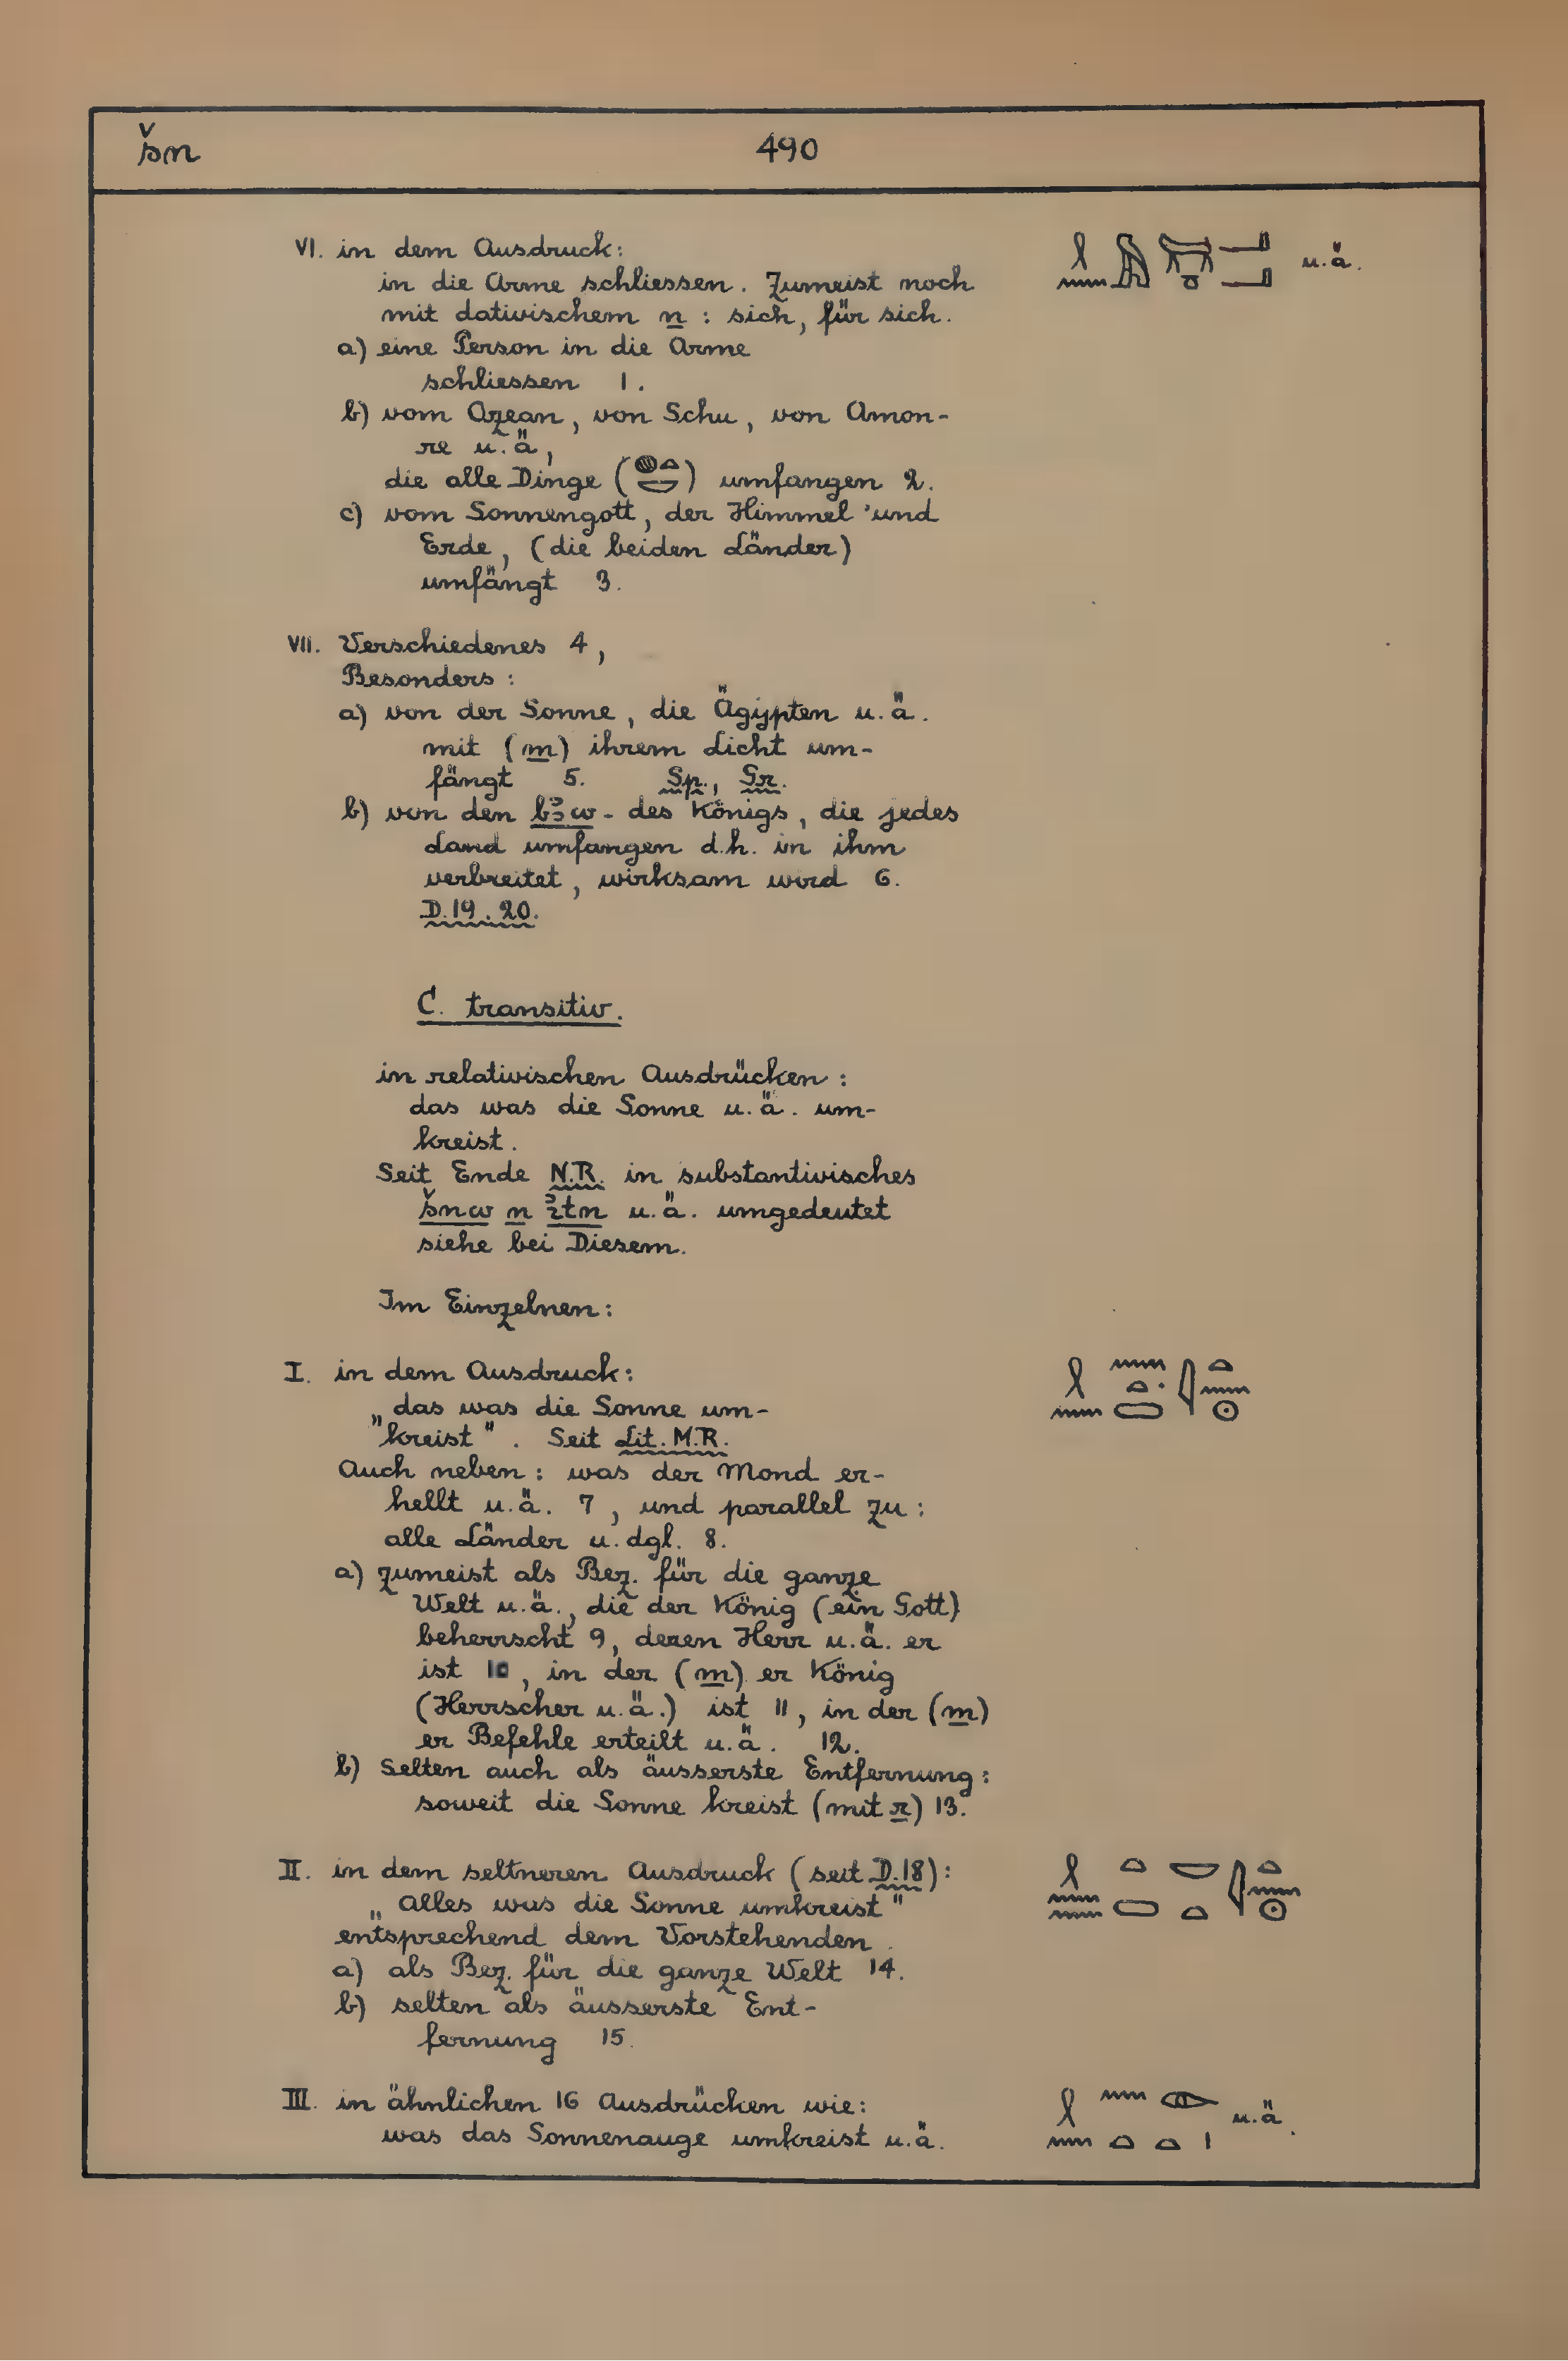 šn 490
VI. in dem Ausdruck:
in die Arme schliessen. Zumeist noch
mit dativischem n : sich, für sich.
u.ä.
a) eine Person in die Arme
schliessen 1.
b) vom Ozean, von Schu, von Amon-
re u.ä,
die alle Dinge ( ) umfangen 2.
c) vom Sonnengott, der Himmel und
Erde, (die beiden Länder)
umfängt 3.
VII. Verschiedenes 4,
Besonders:
a) von der Sonne, die Ägypten u.ä.
mit (m) ihrem Licht um-
fängt 5. Sp., Gr.
b) von den bꜣw - des Königs, die jedes
Land umfangen d.h. in ihm
verbreitet, wirksam wird 6.
D.19.20.
C. transitiv.
in relativischen Ausdrücken:
das was die Sonne u.ä. um-
kreist.
Seit Ende N.R. in substantivisches
šnw n ꞽtn u.ä. umgedeutet
siehe bei Diesem.
Im Einzelnen:
I. in dem Ausdruck:
„das was die Sonne um-
kreist". Seit Lit. M.R.
Auch neben: was der Mond er-
hellt u.ä. 7, und parallel zu:
alle Länder u. dgl. 8.
a) zumeist als Bez. für die ganze
Welt u.ä., die der König (ein Gott)
beherrscht 9, deren Herr u.ä. er
ist 10, in der (m) er König
(Herrscher u.ä.) ist 11, in der (m)
er Befehle erteilt u.ä. 12.
b) Selten auch als äusserste Entfernung:
soweit die Sonne kreist (mit r) 13.
II. in dem seltneren Ausdruck (seit D.18):
„alles was die Sonne umkreist"
entsprechend dem Vorstehenden.
a) als Bez. für die ganze Welt 14.
b) selten als äusserste Ent-
fernung 15.
III. in ähnlichen 16 Ausdrücken wie:
was das Sonnenauge umkreist u.ä.
u.ä.